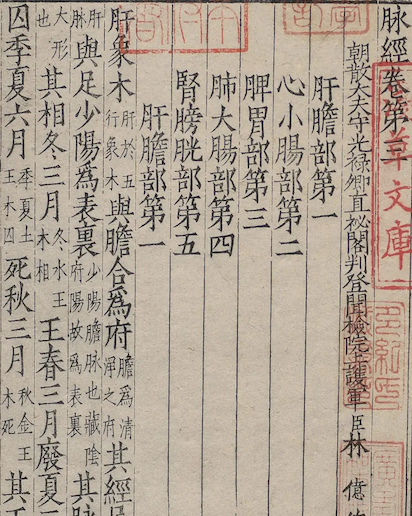 脉經卷第三
朝散大夫守光祿卿直祕閣判登聞檢院上護軍臣林億
肝膽部第一
心小腸部第二
脾胃部第三
肺大腸部第四
腎膀胱部第五
肝膽部第一
肝象木肝於五行象木與膽合爲府膽爲清淨之府其經
肝脉與足少陽爲表裏少陽膽脉也藏陰府陽故爲表裏其脉
大形也其相冬三月冬水王木相王春三月廢夏
囚季夏六月季夏土王木囚死秋三月秋金王木死其王
草文庫